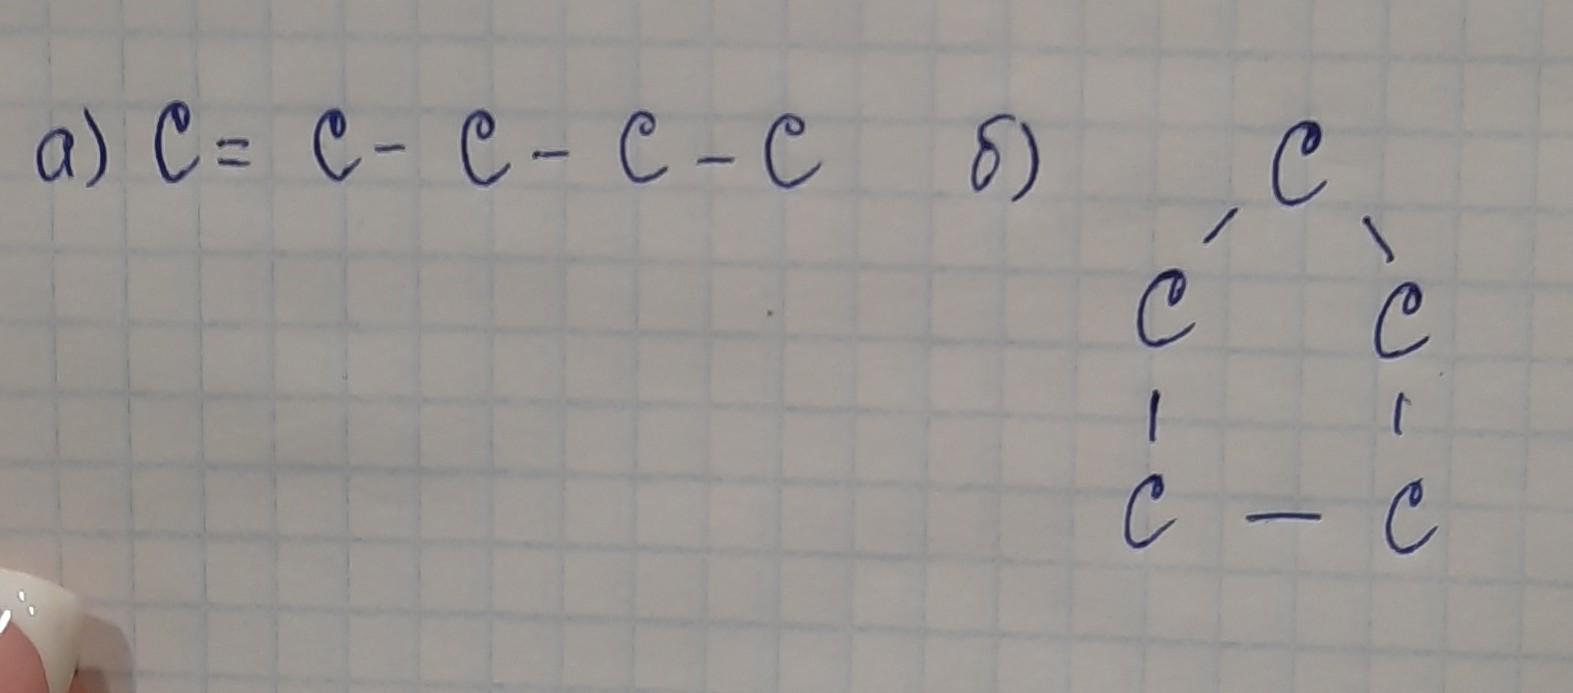 а) C = C - C - C - C б) C
C C
C - C